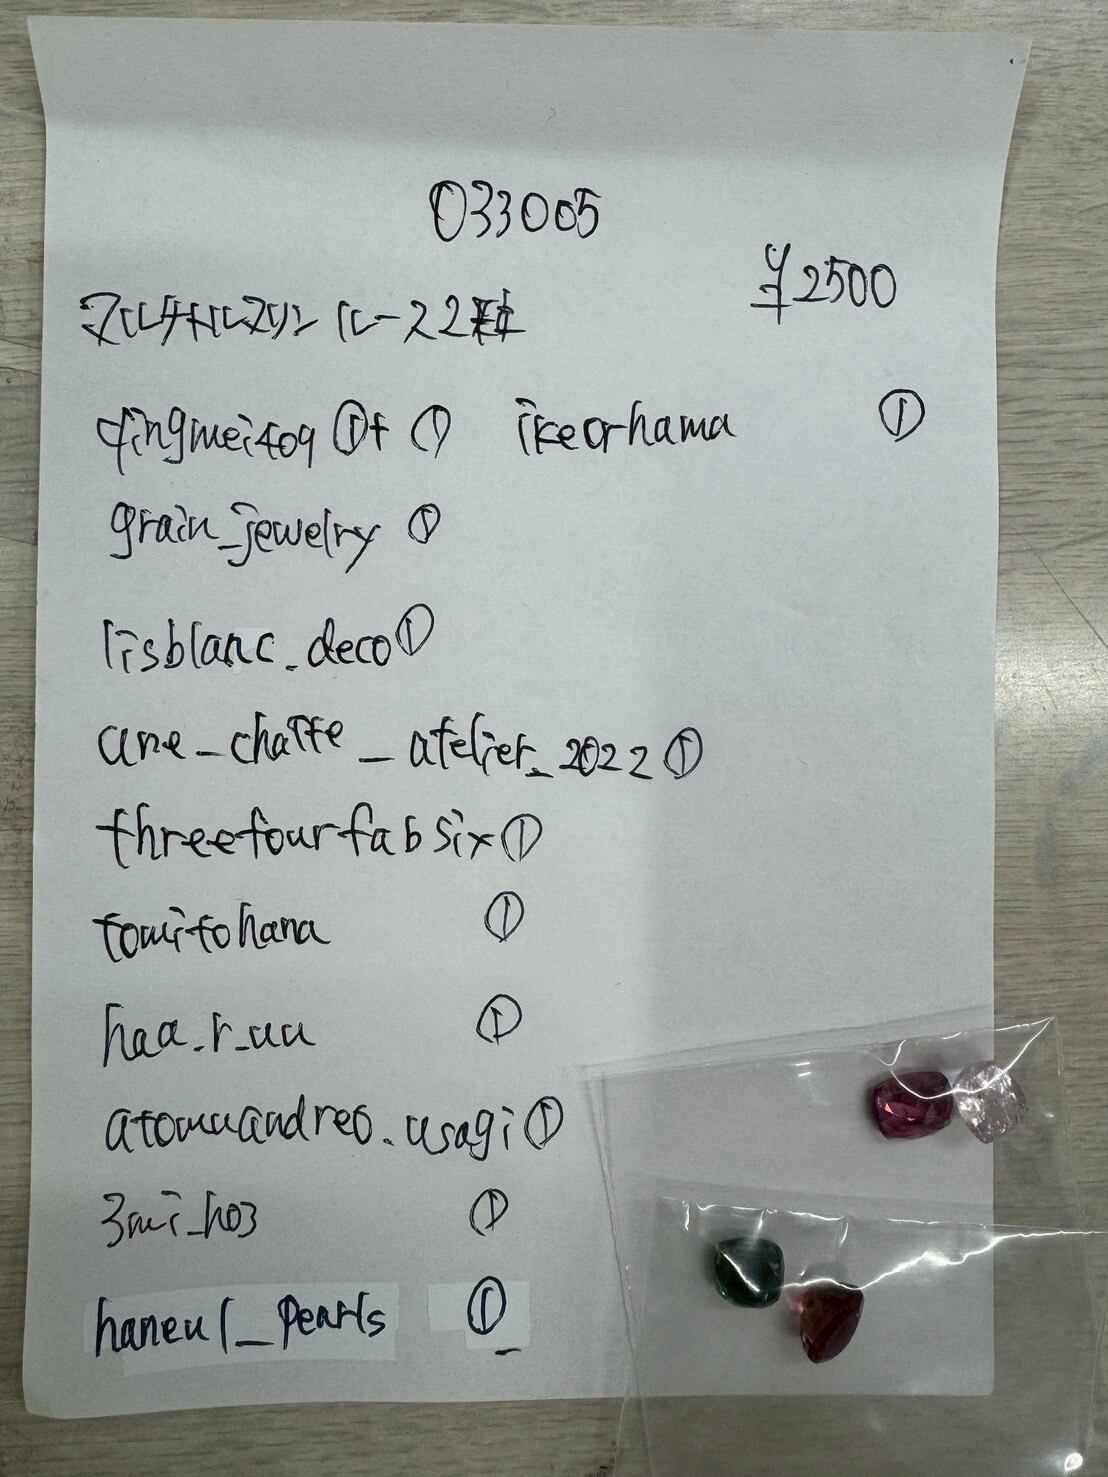 033005
¥2500
マルチトルマリン ルース2粒
qingmeitoq ①+① ikeorhama ①
grain_jewelry ①
lisblanc_deco ①
une_chatte_atelier_2022 ①
threefourfabsix ①
tomitohana ①
haa_r_uu ①
atomuandreo.usagi ①
3mi_ho3 ①
haneul_pearls ①